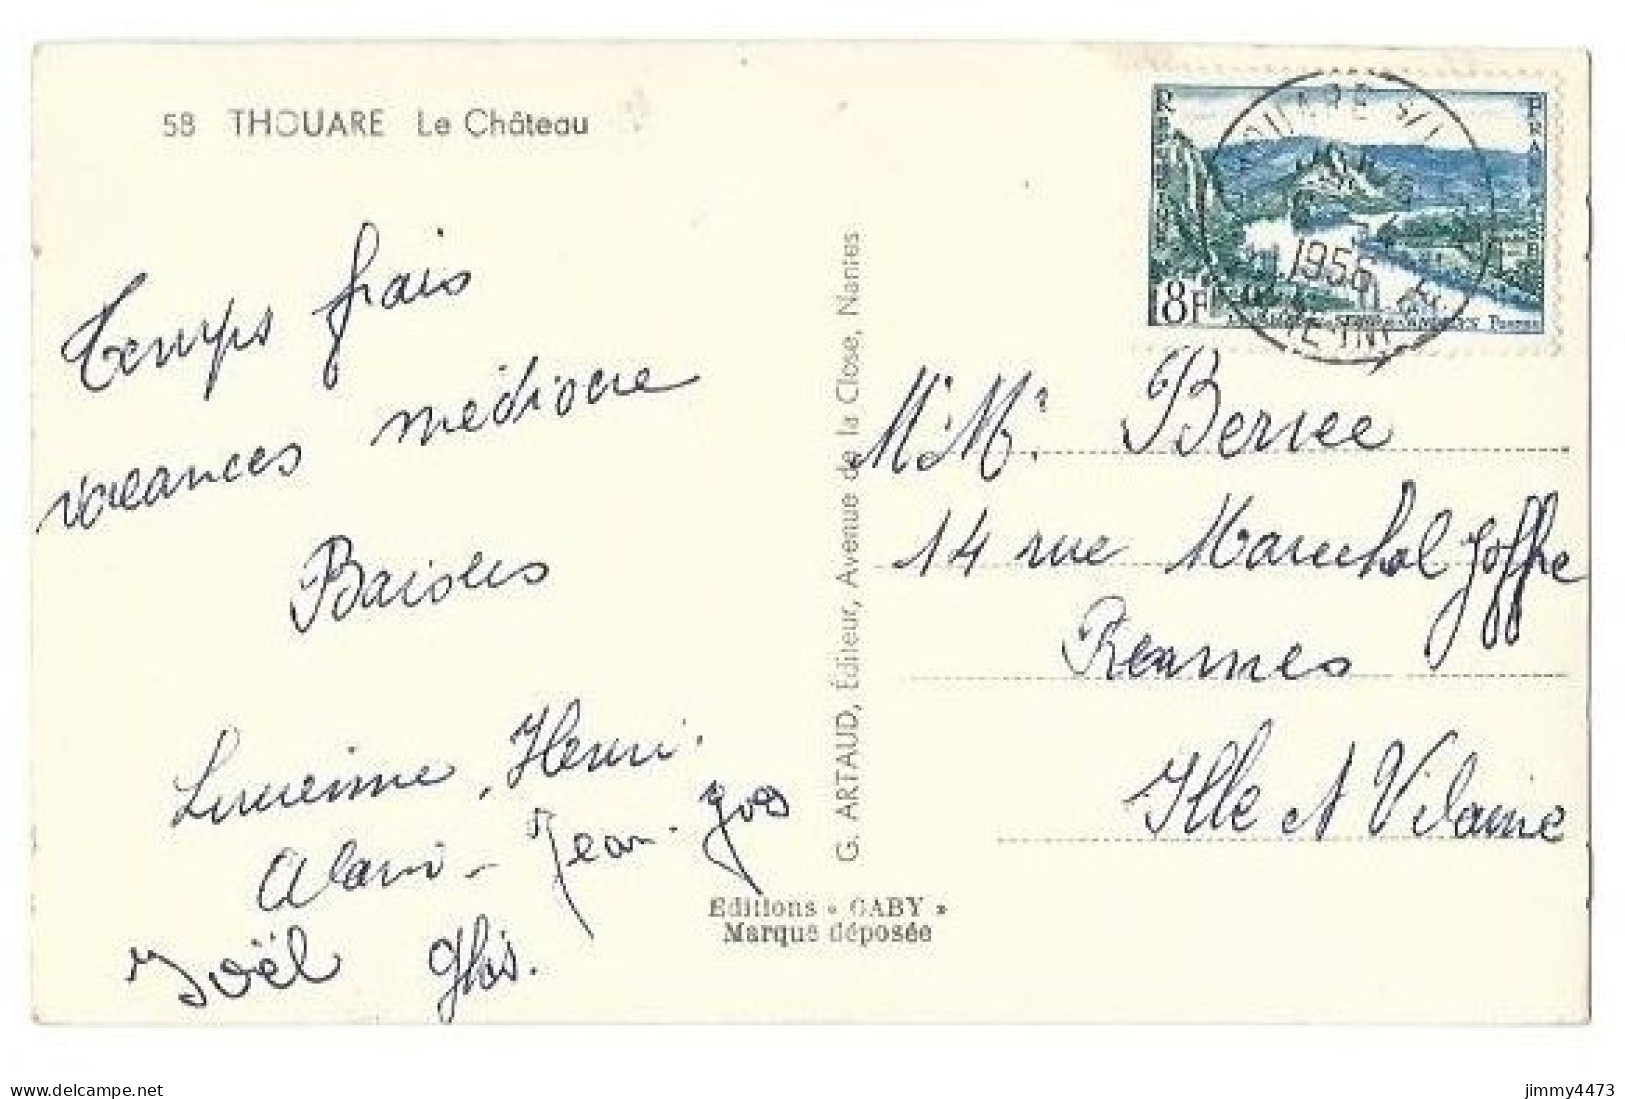 58 THOUARE Le Château
Temps frais
vacances médiocre
Baisers
Lucienne, Henri.
Alain - Jean. Yves
Joël Ghis.
G. ARTAUD, Éditeur, Avenue de la Close, Nantes
Editions « GABY »
Marque déposée
8F
1956
14 rue Marechal Joffre
Rennes
Ille et Vilaine
delcampe.net
jimmy4473